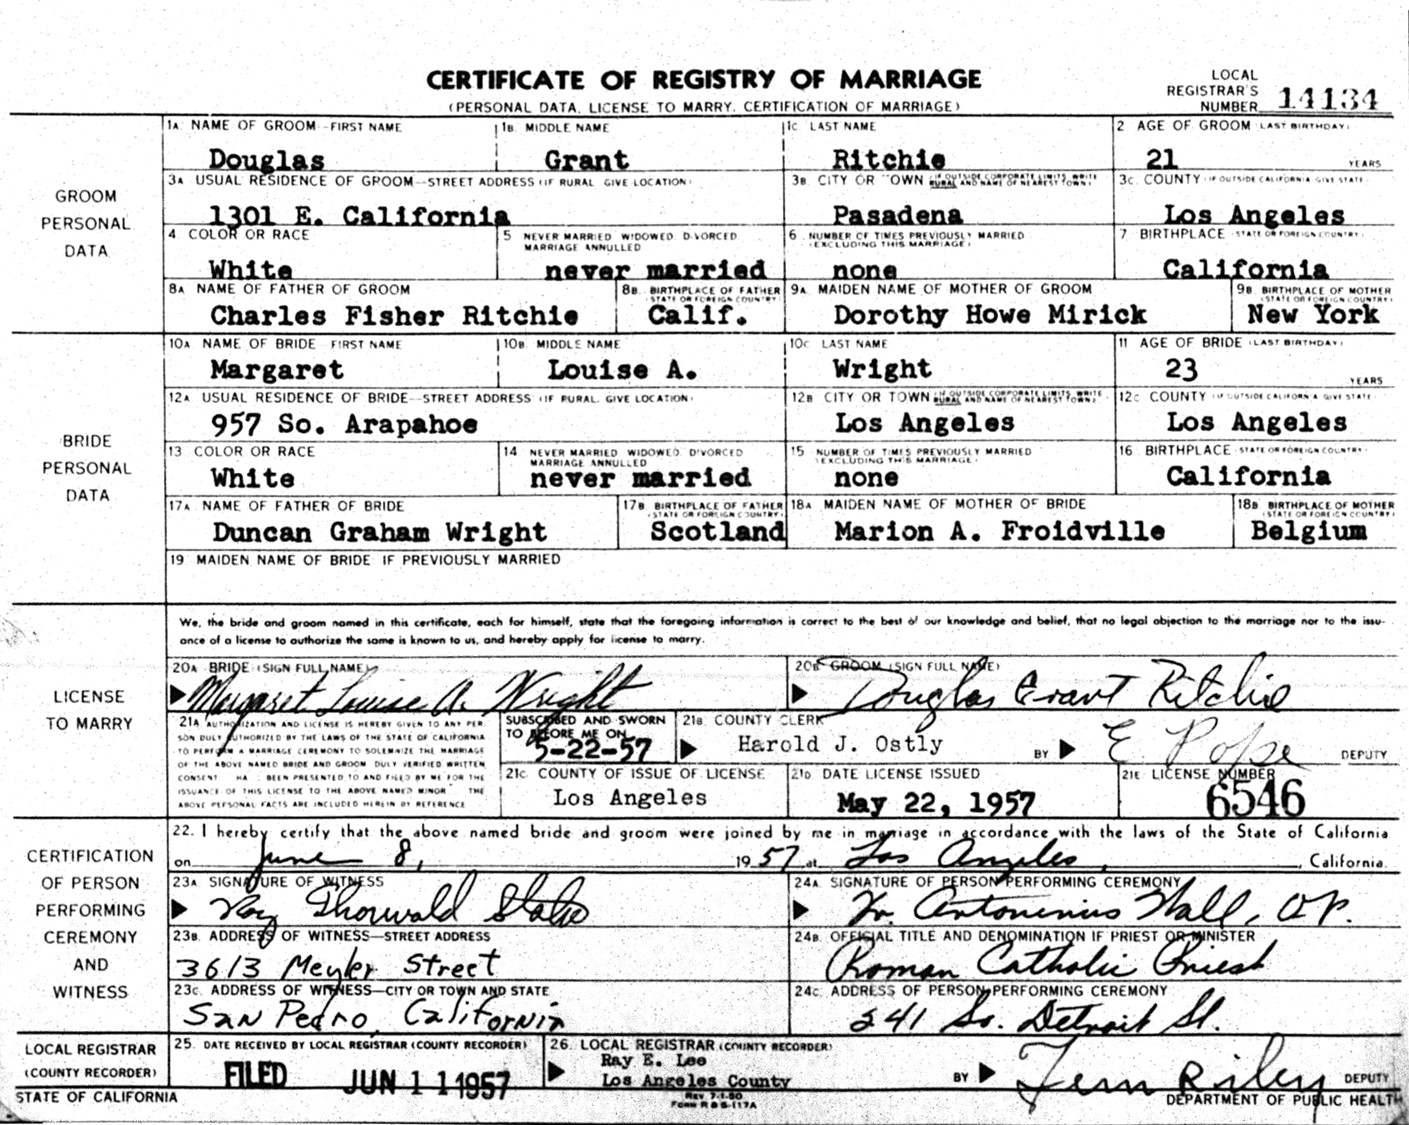 CERTIFICATE OF REGISTRY OF MARRIAGE
(PERSONAL DATA, LICENSE TO MARRY, CERTIFICATION OF MARRIAGE)
LOCAL REGISTRAR'S NUMBER 14134
GROOM PERSONAL DATA
1A. NAME OF GROOM—FIRST NAME 1B. MIDDLE NAME 1C LAST NAME 2 AGE OF GROOM (LAST BIRTHDAY)
Douglas Grant Ritchie 21 YEARS
3A USUAL RESIDENCE OF GROOM—STREET ADDRESS (IF RURAL GIVE LOCATION) 3B. CITY OR TOWN (IF OUTSIDE CORPORATE LIMITS, WRITE RURAL AND NAME OF NEAREST TOWN) 3C. COUNTY (IF OUTSIDE CALIFORNIA GIVE STATE)
1301 E. California Pasadena Los Angeles
4 COLOR OR RACE 5 NEVER MARRIED WIDOWED DIVORCED MARRIAGE ANNULLED 6 NUMBER OF TIMES PREVIOUSLY MARRIED (EXCLUDING THIS MARRIAGE) 7 BIRTHPLACE (STATE OR FOREIGN COUNTRY)
White never married none California
8A NAME OF FATHER OF GROOM 8B. BIRTHPLACE OF FATHER (STATE OR FOREIGN COUNTRY) 9A MAIDEN NAME OF MOTHER OF GROOM 9B. BIRTHPLACE OF MOTHER (STATE OR FOREIGN COUNTRY)
Charles Fisher Ritchie Calif. Dorothy Howe Mirick New York
BRIDE PERSONAL DATA
10A NAME OF BRIDE FIRST NAME 10B. MIDDLE NAME 10C LAST NAME 11 AGE OF BRIDE (LAST BIRTHDAY)
Margaret Louise A. Wright 23 YEARS
12A USUAL RESIDENCE OF BRIDE—STREET ADDRESS (IF RURAL, GIVE LOCATION) 12B CITY OR TOWN (IF OUTSIDE CORPORATE LIMITS, WRITE RURAL AND NAME OF NEAREST TOWN) 12C COUNTY (IF OUTSIDE CALIFORNIA GIVE STATE)
957 So. Arapahoe Los Angeles Los Angeles
13 COLOR OR RACE 14 NEVER MARRIED WIDOWED DIVORCED MARRIAGE ANNULLED 15 NUMBER OF TIMES PREVIOUSLY MARRIED (EXCLUDING THIS MARRIAGE) 16 BIRTHPLACE (STATE OR FOREIGN COUNTRY)
White never married none California
17A NAME OF FATHER OF BRIDE 17B BIRTHPLACE OF FATHER (STATE OR FOREIGN COUNTRY) 18A MAIDEN NAME OF MOTHER OF BRIDE 18B BIRTHPLACE OF MOTHER (STATE OR FOREIGN COUNTRY)
Duncan Graham Wright Scotland Marion A. Froidville Belgium
19 MAIDEN NAME OF BRIDE IF PREVIOUSLY MARRIED
LICENSE TO MARRY
We, the bride and groom named in this certificate, each for himself, state that the foregoing information is correct to the best of our knowledge and belief, that no legal objection to the marriage nor to the issu-
ance of a license to authorize the same is known to us, and hereby apply for license to marry.
20A BRIDE (SIGN FULL NAME) 20B GROOM (SIGN FULL NAME)
Margaret Louise A. Wright Douglas Grant Ritchie
21A AUTHORIZATION AND LICENSE IS HEREBY GIVEN TO ANY PER-
SON DULY AUTHORIZED BY THE LAWS OF THE STATE OF CALIFORNIA
TO PERFORM A MARRIAGE CEREMONY TO SOLEMNIZE THE MARRIAGE
OF THE ABOVE NAMED BRIDE AND GROOM DULY VERIFIED WRITTEN
CONSENT HA BEEN PRESENTED TO AND FILED BY ME FOR THE
ISSUANCE OF THIS LICENSE TO THE ABOVE NAMED MINOR THE
ABOVE PERSONAL FACTS ARE INCLUDED HEREIN BY REFERENCE
SUBSCRIBED AND SWORN TO BEFORE ME ON
5-22-57
21B COUNTY CLERK
Harold J. Ostly BY E Pope DEPUTY
21C. COUNTY OF ISSUE OF LICENSE 21D DATE LICENSE ISSUED 21E LICENSE NUMBER
Los Angeles May 22, 1957 6546
CERTIFICATION OF PERSON PERFORMING CEREMONY AND WITNESS
22. I hereby certify that the above named bride and groom were joined by me in marriage in accordance with the laws of the State of California
on June 8, 1957 at Los Angeles, California.
23A SIGNATURE OF WITNESS 24A. SIGNATURE OF PERSON PERFORMING CEREMONY
Roy Thorwald Fr. Antoninus Wall, O.P.
23B. ADDRESS OF WITNESS—STREET ADDRESS 24B. OFFICIAL TITLE AND DENOMINATION IF PRIEST OR MINISTER
3613 Meyler Street Roman Catholic Priest
23C. ADDRESS OF WITNESS—CITY OR TOWN AND STATE 24C ADDRESS OF PERSON PERFORMING CEREMONY
San Pedro, California 241 So. Detroit St.
LOCAL REGISTRAR (COUNTY RECORDER)
25. DATE RECEIVED BY LOCAL REGISTRAR (COUNTY RECORDER) 26. LOCAL REGISTRAR (COUNTY RECORDER)
FILED JUN 11 1957 Ray E. Lee
Los Angeles County BY Fern Riley DEPUTY
STATE OF CALIFORNIA REV 7-1-50 DEPARTMENT OF PUBLIC HEALTH
FORM R & S-117A